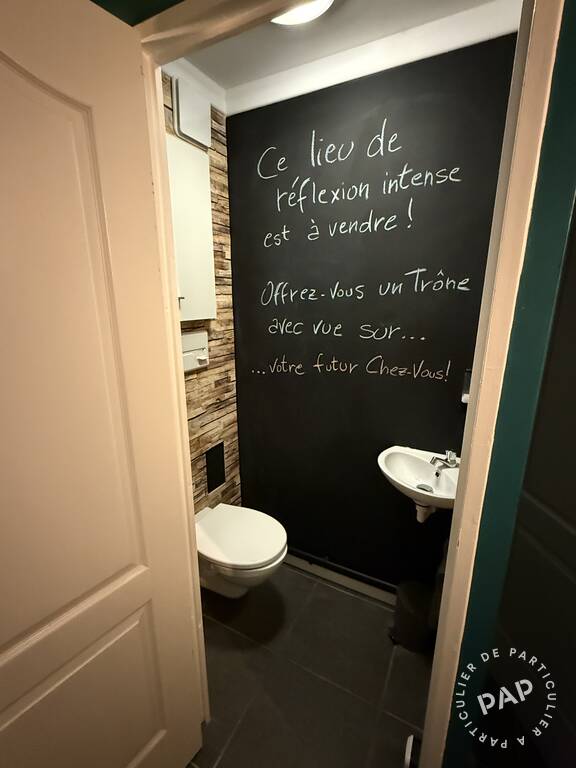 Ce lieu de
réflexion intense
est à vendre !
Offrez-vous un Trône
avec vue sur...
...votre futur Chez-Vous!
DE PARTICULIER A PARTICULIER
PAP